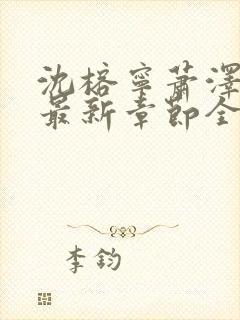 沈榕寧蕭澤
最新章節全
李鈞